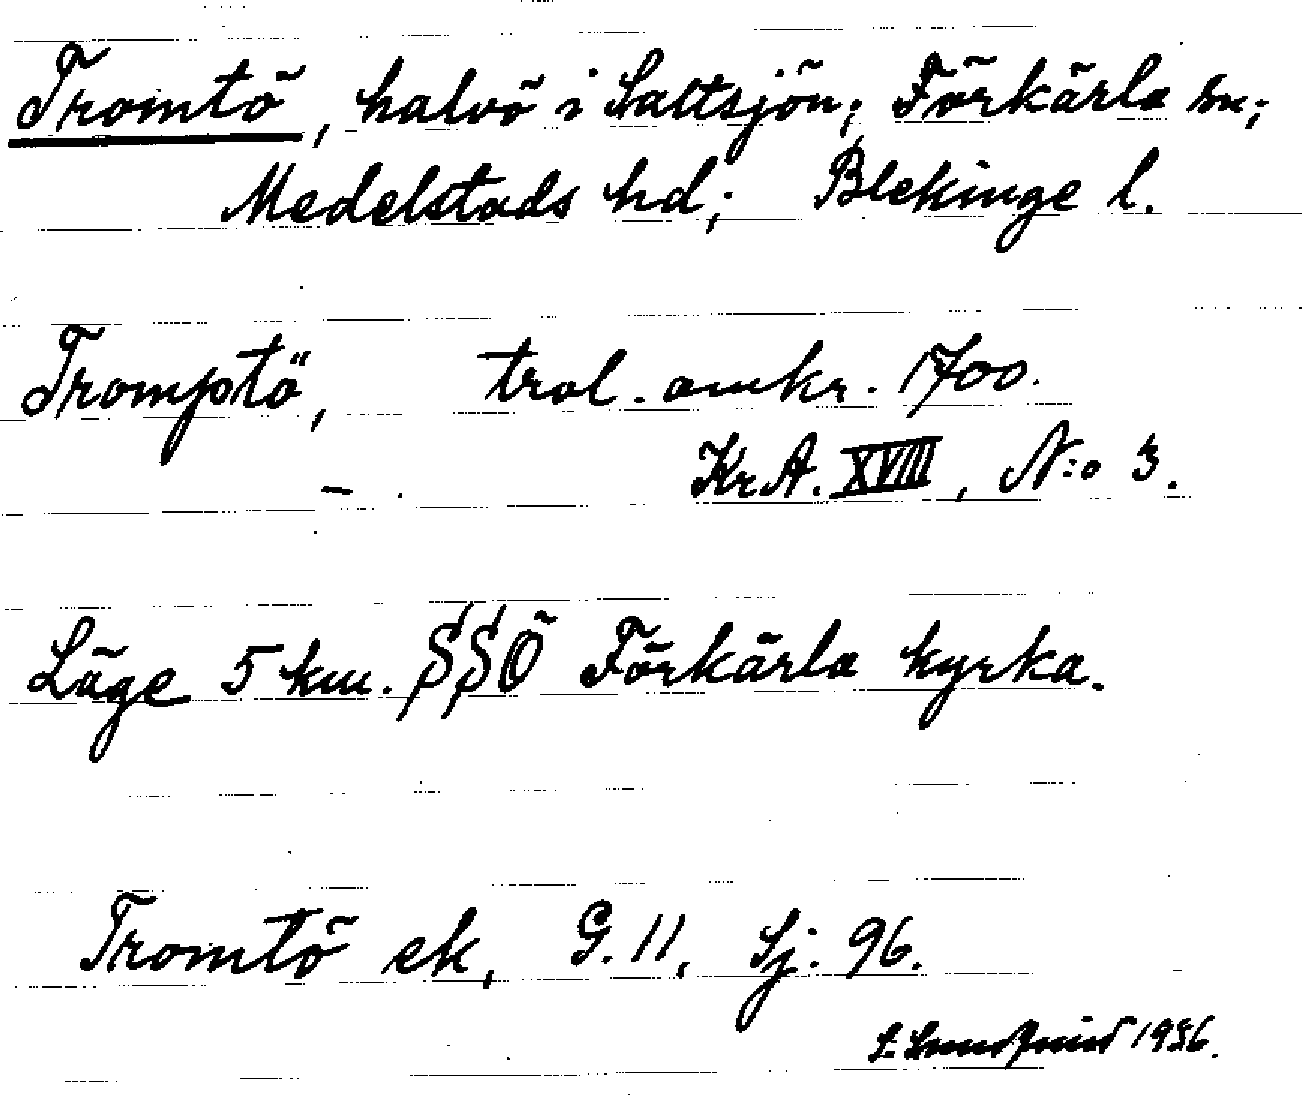 Tromtö, halvö i Saltsjön; Förkärla sn;
Medelstads hd; Blekinge l.
Tromptö, trol. omkr. 1700.
Kr.A. XVIII, N:o 3.
Läge 5 km. SSÖ Förkärla kyrka.
Tromtö ek, G. 11, Sj. 96.
1936.